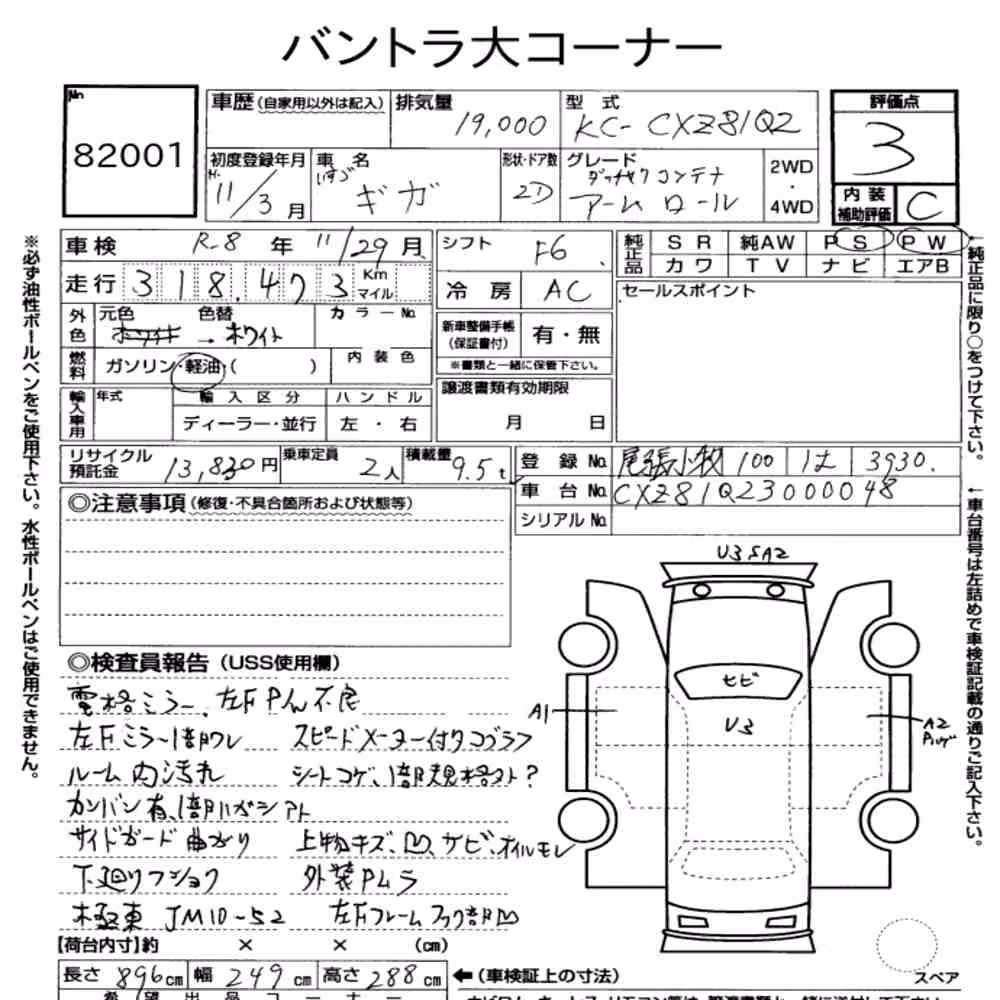 バントラ大コーナー
No 82001
車歴(自家用以外は記入) 排気量 19,000 型式 KC- CXZ81Q2 評価点 3
初度登録年月 H. 11/3月 車名 いすゞ ギガ 形状・ドア数 2D グレード ダッチャクコンテナ アームロール 2WD・4WD 内装補助評価 C
車検 R-8年 11/29月 シフト F6 純正品 SR 純AW PS PW
カワ TV ナビ エアB
走行 318.473 Km マイル 冷房 AC セールスポイント
外色 元色 ホワイト → 色替 ホワイト カラーNo. 新車整備手帳(保証書付) 有・無
※書類と一緒に保管下さい。
燃料 ガソリン・軽油・( ) 内装色
譲渡書類有効期限 月 日
輸入車用 年式 輸入区分 ハンドル
ディーラー・並行 左・右
リサイクル預託金 13,830円 乗車定員 2人 積載量 9.5t 登録No. 尾張小牧 100 は 3930.
車台No. CXZ81Q23000048
シリアルNo.
◎注意事項(修復・不具合箇所および状態等)
※必ず油性ボールペンをご使用下さい。水性ボールペンはご使用できません。
←純正品に限り○をつけて下さい。
←車台番号は左詰めで車検証記載の通りご記入下さい。
◎検査員報告(USS使用欄)
電格ミラー、左F Pん不良
左Fミラー1部ワレ スピードメーター付りコブラフ
ルーム内汚れ シートコゲ、1部規格外?
カンバン有、1部ハガシアト
サイドガード曲がり 上物キズ、凹、サビ、オイルモレ
下廻りフショク 外装Pムラ
極東 JM10-52 左Fフレームフック部凹
U3 SA2
サビ
U3
A1
A2
スペア
【荷台内寸】約 × × (cm)
長さ 896cm 幅 249cm 高さ 288cm ←(車検証上の寸法)
希望出品コーナー